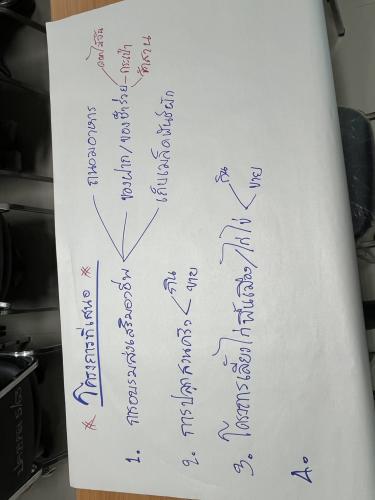 * โครงการที่เสนอ *
1. การอบรมส่งเสริมอาชีพ
ถนอมอาหาร
ของฝาก/ของชำร่วย - กระเป๋า
ดอกไม้จัน
จักสาน
เก็บเมล็ดพันธุ์ผัก
2. การปลูกสวนครัว
กิน
ขาย
3. โครงการเลี้ยงไก่พื้นเมือง/ไก่ไข่
กิน
ขาย
4.